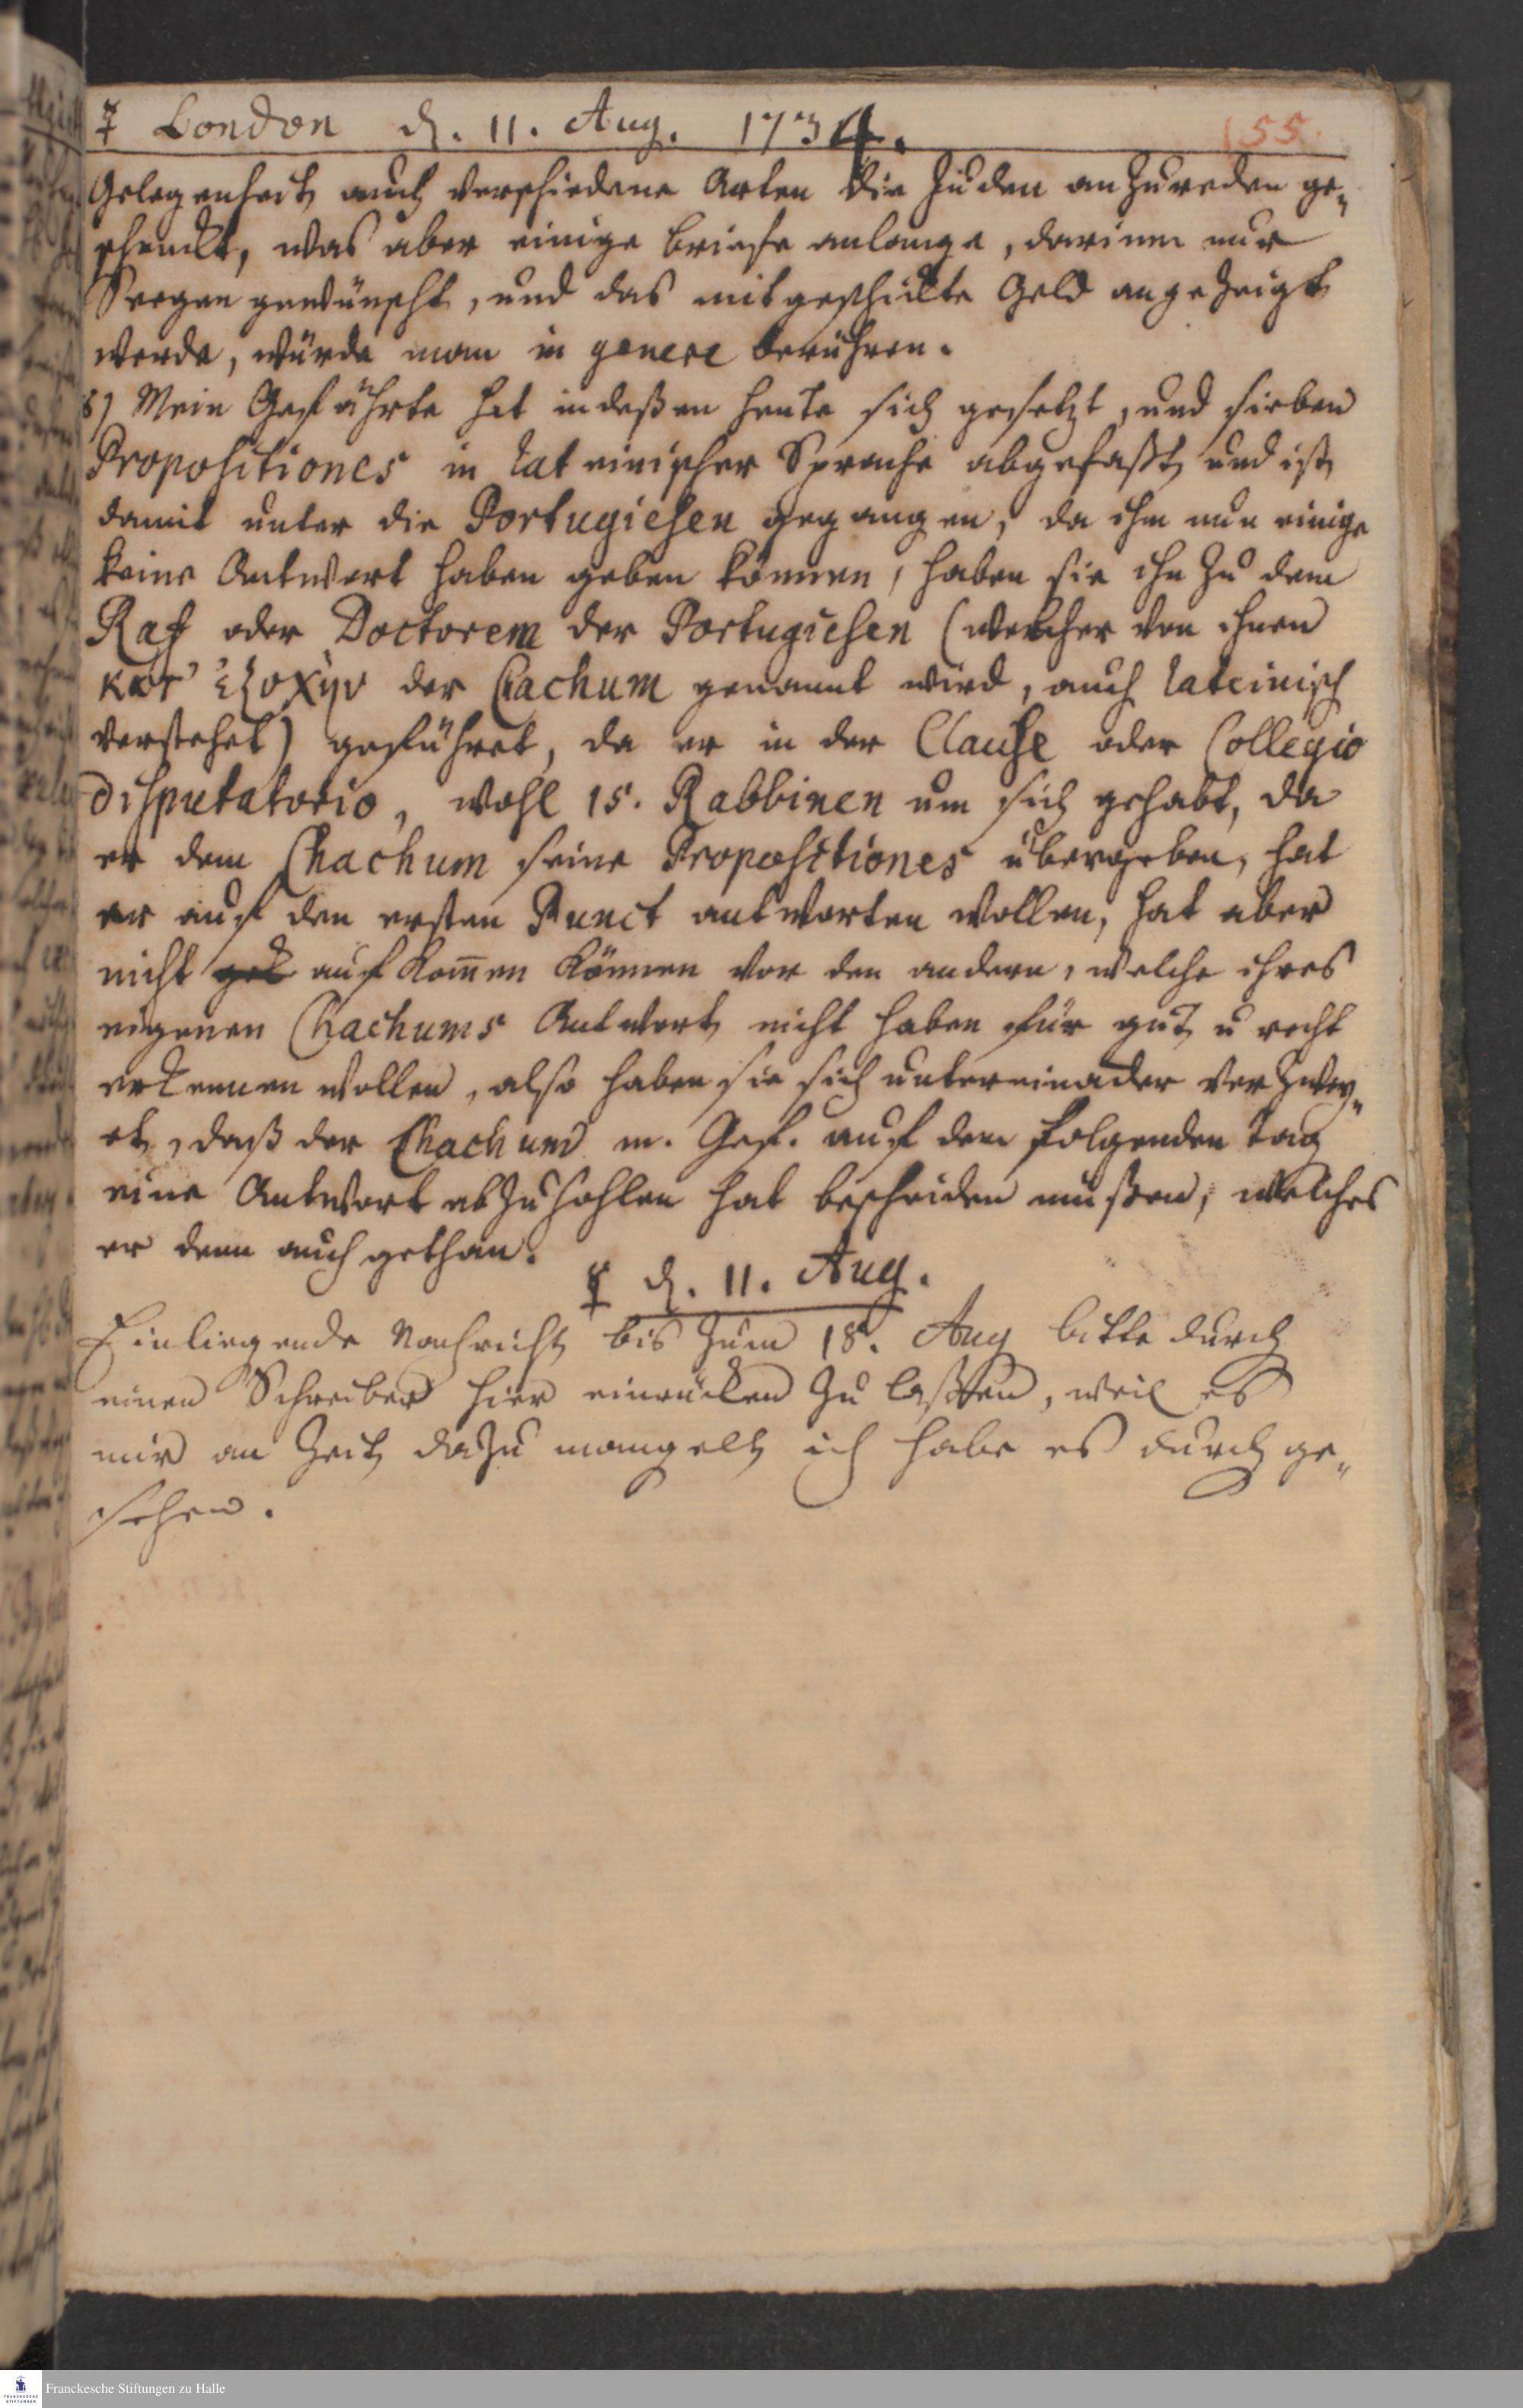 ☿ London d. 11. Aug. 1734. 155.
Gelegenheit auch verschiedene Arten die Juden anzureden ge-
schenckt, was aber einige briefe anlange, darinn nur
Seegen gewünscht, und das mitgeschickte Geld angezeigt
werde, würde man in genere berühren.
8) Mein Gefährte hat indeßen heute sich gesetzt, und sieben
Propositiones in lateinischer Sprache abgefaßt und ist
damit unter die Portugiesen gegangen, da ihm nun einige
keine Antwort haben geben können, haben sie ihn zu dem
Raf oder Doctorem der Portugiesen (welcher von ihnen
κατ' ἐξοχὴν der Chachum genannt wird, auch lateinisch
verstehet) geführet, da er in der Clause oder Collegio
disputatorio, wohl 15. Rabbinen um sich gehabt, da
er dem Chachum seine Propositiones übergeben, hat
er auf den ersten Punct antworten wollen, hat aber
nicht auf kom̄en können vor den andern, welche ihres
eigenen Chachums Antwort nicht haben für gut u recht
erkennen wollen, also haben sie sich untereinader verzwey-
et, daß der Chachum m. Gef. auf den folgenden tag
eine Antwort abzuhohlen hat bescheiden müßen, welches
er denn auch gethan.
☿ d. 11. Aug.
Einliegende Nachricht bis zum 18. Aug bitte durch
einen Schreiber hier einrücken zu laßen, weil es
mir an Zeit dazu mangelt ich habe es durch ge-
sehen.
Franckesche Stiftungen zu Halle